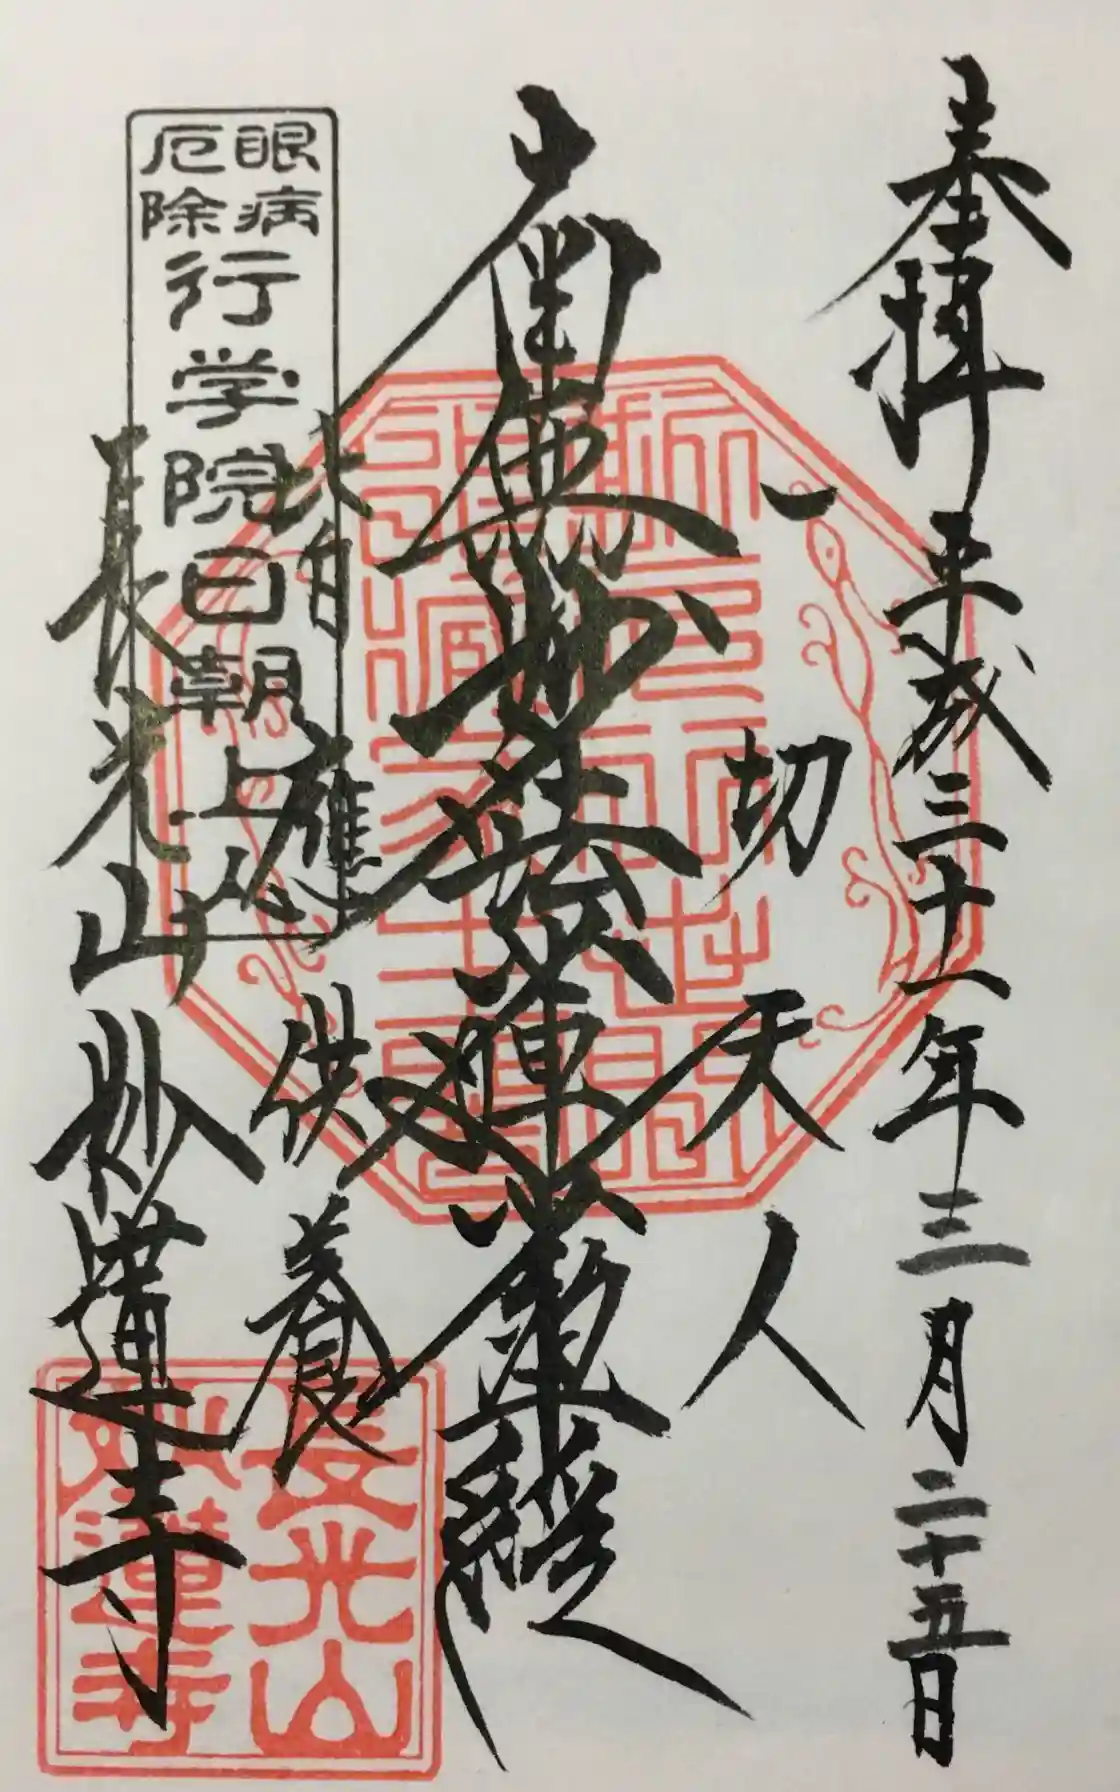 奉拝
平成三十一年三月二十五日
一切天人
南無妙法蓮華経
皆應供養
長光山妙蓮寺
眼病
厄除
行学院日朝上人
長光山
妙蓮寺